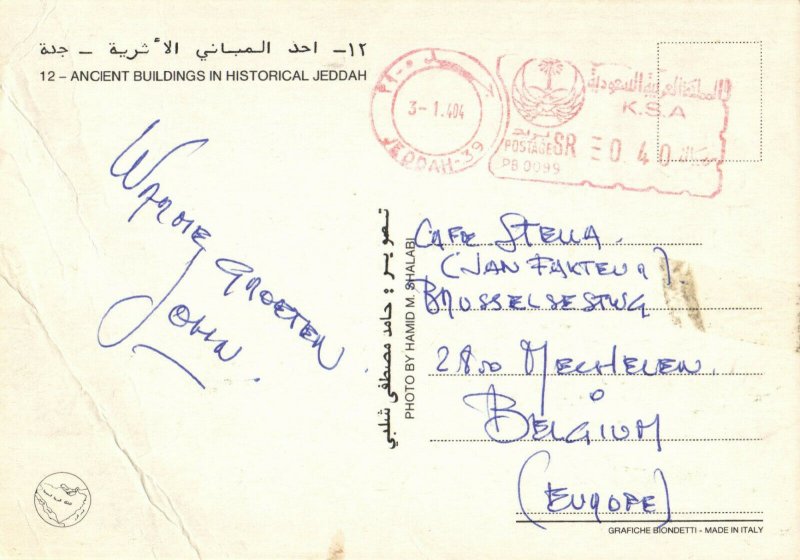 ١٢- احد المباني الأثرية - جدة
12 – ANCIENT BUILDINGS IN HISTORICAL JEDDAH
3-1.404
JEDDAH-39
المملكة العربية السعودية
K.S.A
بريد
POSTAGE SR 0.40
PB 0099
WARME GROETEN
JOHN.
تصوير: حامد مصطفى شلبي
PHOTO BY HAMID M. SHALABI
CAFE STELLA.
(JAN FAKTEUR).
BRUSSELSESTWG
2800 MECHELEN.
BELGIUM
(EUROPE)
GRAFICHE BIONDETTI - MADE IN ITALY